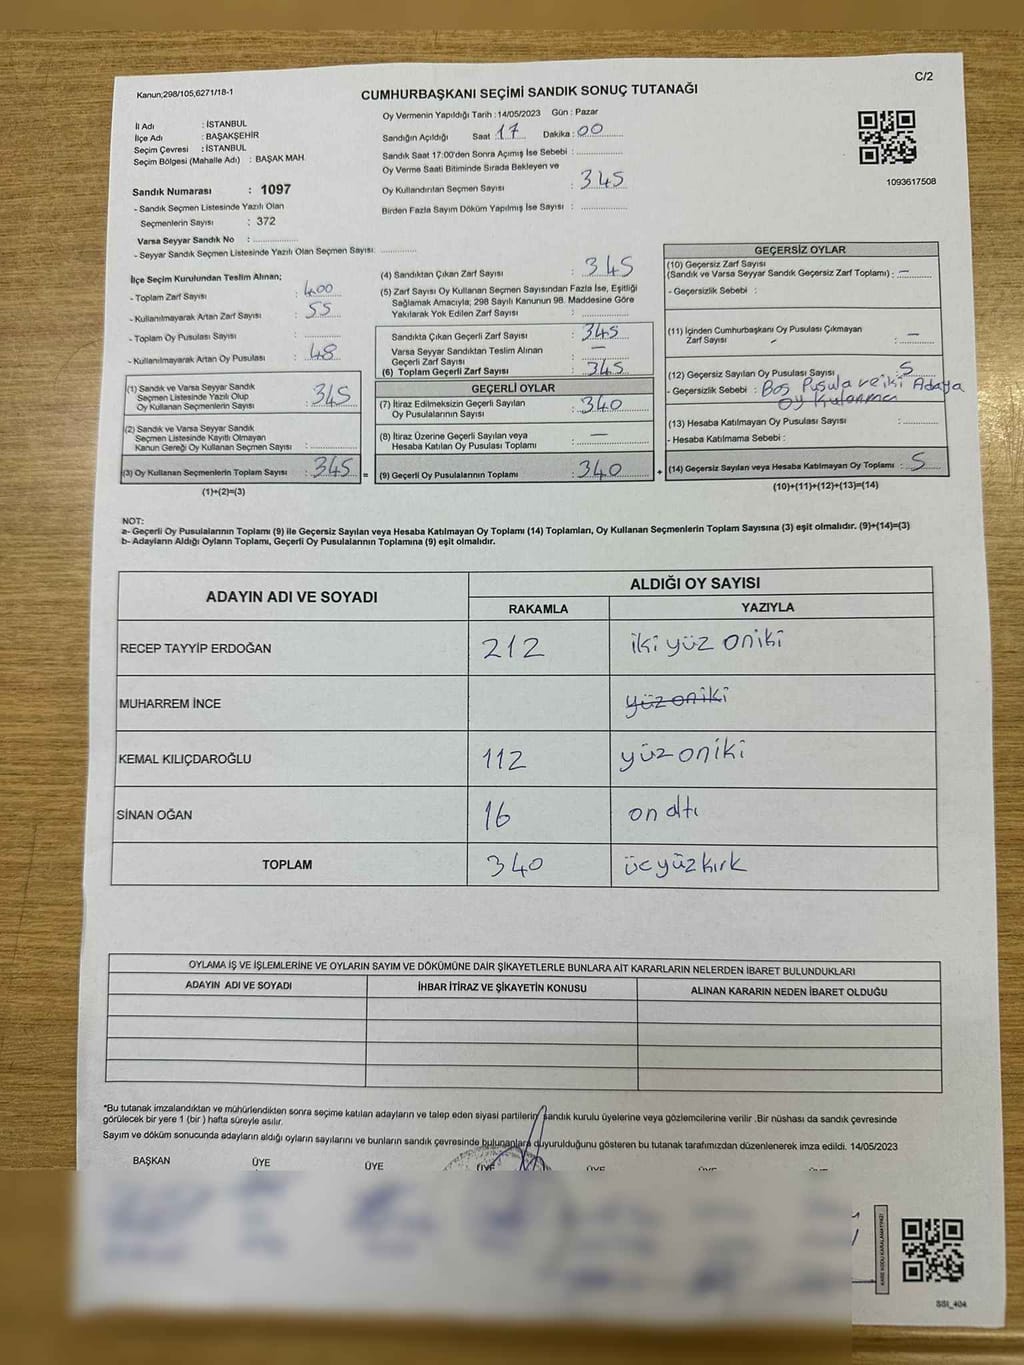 C/2
Kanun;298/105,6271/18-1
CUMHURBAŞKANI SEÇİMİ SANDIK SONUÇ TUTANAĞI
İl Adı : İSTANBUL
İlçe Adı : BAŞAKŞEHİR
Seçim Çevresi : İSTANBUL
Seçim Bölgesi (Mahalle Adı) : BAŞAK MAH.
Oy Vermenin Yapıldığı Tarih : 14/05/2023 Gün : Pazar
Sandığın Açıldığı Saat 17 Dakika : 00
Sandık Saat 17:00'den Sonra Açımış İse Sebebi :
Oy Verme Saati Bitiminde Sırada Bekleyen ve
Oy Kullandırılan Seçmen Sayısı : 345
Birden Fazla Sayım Döküm Yapılmış İse Sayısı :
1093617508
Sandık Numarası : 1097
- Sandık Seçmen Listesinde Yazılı Olan
Seçmenlerin Sayısı : 372
Varsa Seyyar Sandık No :
- Seyyar Sandık Seçmen Listesinde Yazılı Olan Seçmen Sayısı:
İlçe Seçim Kurulundan Teslim Alınan;
- Toplam Zarf Sayısı : 400
- Kullanılmayarak Artan Zarf Sayısı : 55
- Toplam Oy Pusulası Sayısı :
- Kullanılmayarak Artan Oy Pusulası : 48
(1) Sandık ve Varsa Seyyar Sandık
Seçmen Listesinde Yazılı Olup
Oy Kullanan Seçmenlerin Sayısı : 345
(2) Sandık ve Varsa Seyyar Sandık
Seçmen Listesinde Kayıtlı Olmayan
Kanun Gereği Oy Kullanan Seçmen Sayısı :
(3) Oy Kullanan Seçmenlerin Toplam Sayısı : 345 =
(1)+(2)=(3)
(4) Sandıktan Çıkan Zarf Sayısı : 345
(5) Zarf Sayısı Oy Kullanan Seçmen Sayısından Fazla İse, Eşitliği
Sağlamak Amacıyla; 298 Sayılı Kanunun 98. Maddesine Göre
Yakılarak Yok Edilen Zarf Sayısı :
Sandıkta Çıkan Geçerli Zarf Sayısı : 345
Varsa Seyyar Sandıktan Teslim Alınan
Geçerli Zarf Sayısı : —
(6) Toplam Geçerli Zarf Sayısı : 345
GEÇERLİ OYLAR
(7) İtiraz Edilmeksizin Geçerli Sayılan
Oy Pusulalarının Sayısı : 340
(8) İtiraz Üzerine Geçerli Sayılan veya
Hesaba Katılan Oy Pusulası Toplamı : —
(9) Geçerli Oy Pusulalarının Toplamı : 340 +
GEÇERSİZ OYLAR
(10) Geçersiz Zarf Sayısı
(Sandık ve Varsa Seyyar Sandık Geçersiz Zarf Toplamı) : —
- Geçersizlik Sebebi :
(11) İçinden Cumhurbaşkanı Oy Pusulası Çıkmayan
Zarf Sayısı : —
(12) Geçersiz Sayılan Oy Pusulası Sayısı : 5
- Geçersizlik Sebebi : Boş Pusula ve iki Adaya
oy kulanma
(13) Hesaba Katılmayan Oy Pusulası Sayısı :
- Hesaba Katılmama Sebebi :
(14) Geçersiz Sayılan veya Hesaba Katılmayan Oy Toplamı : 5
(10)+(11)+(12)+(13)=(14)
NOT:
a- Geçerli Oy Pusulalarının Toplamı (9) ile Geçersiz Sayılan veya Hesaba Katılmayan Oy Toplamı (14) Toplamları, Oy Kullanan Seçmenlerin Toplam Sayısına (3) eşit olmalıdır. (9)+(14)=(3)
b- Adayların Aldığı Oyların Toplamı, Geçerli Oy Pusulalarının Toplamına (9) eşit olmalıdır.
ADAYIN ADI VE SOYADI
ALDIĞI OY SAYISI
RAKAMLA YAZIYLA
RECEP TAYYİP ERDOĞAN 212 iki yüz oniki
MUHARREM İNCE yüz oniki
KEMAL KILIÇDAROĞLU 112 yüz oniki
SİNAN OĞAN 16 on altı
TOPLAM 340 üc yüz kırk
OYLAMA İŞ VE İŞLEMLERİNE VE OYLARIN SAYIM VE DÖKÜMÜNE DAİR ŞİKAYETLERLE BUNLARA AİT KARARLARIN NELERDEN İBARET BULUNDUKLARI
ADAYIN ADI VE SOYADI İHBAR İTİRAZ VE ŞİKAYETİN KONUSU ALINAN KARARIN NEDEN İBARET OLDUĞU
*Bu tutanak imzalandıktan ve mühürlendikten sonra seçime katılan adayların ve talep eden siyasi partilerin sandık kurulu üyelerine veya gözlemcilerine verilir .Bir nüshası da sandık çevresinde
görülecek bir yere 1 (bir ) hafta süreyle asılır.
Sayım ve döküm sonucunda adayların aldığı oyların sayılarını ve bunların sandık çevresinde bulunanlara duyurulduğunu gösteren bu tutanak tarafımızdan düzenlenerek imza edildi. 14/05/2023
BAŞKAN ÜYE ÜYE ÜYE ÜYE
KARE KODU KARALAMAYINIZ!
SSI_404